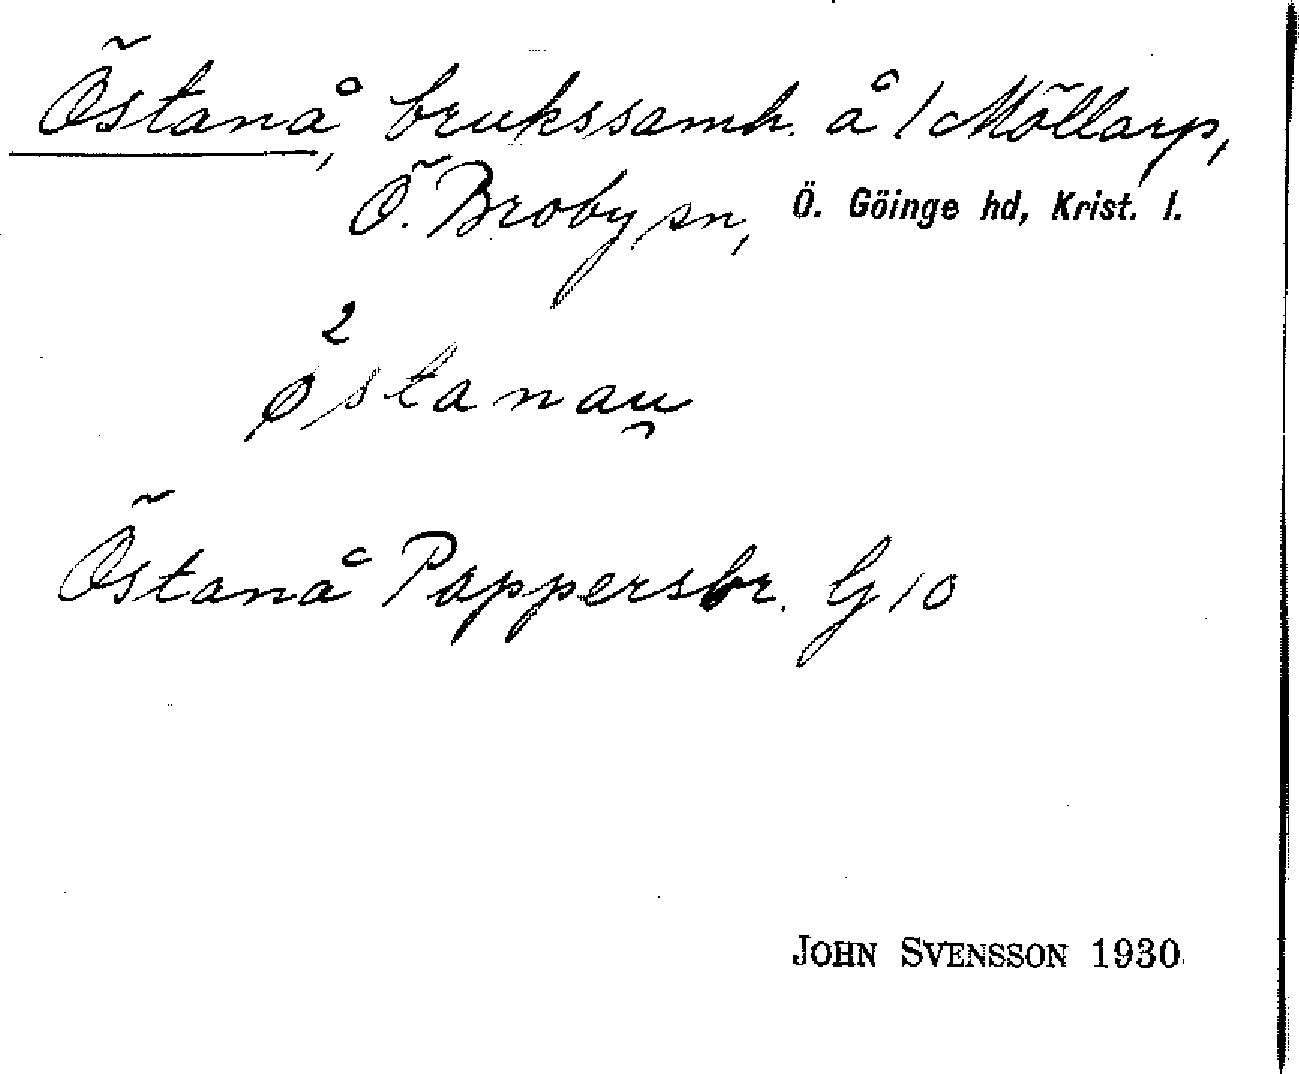 Östanå, brukssamh. å 1 Möllarp,
Ö. Broby sn, Ö. Göinge hd, Krist. l.
2
østanau̯
Östanå Pappersbr. G 10
JOHN SVENSSON 1930